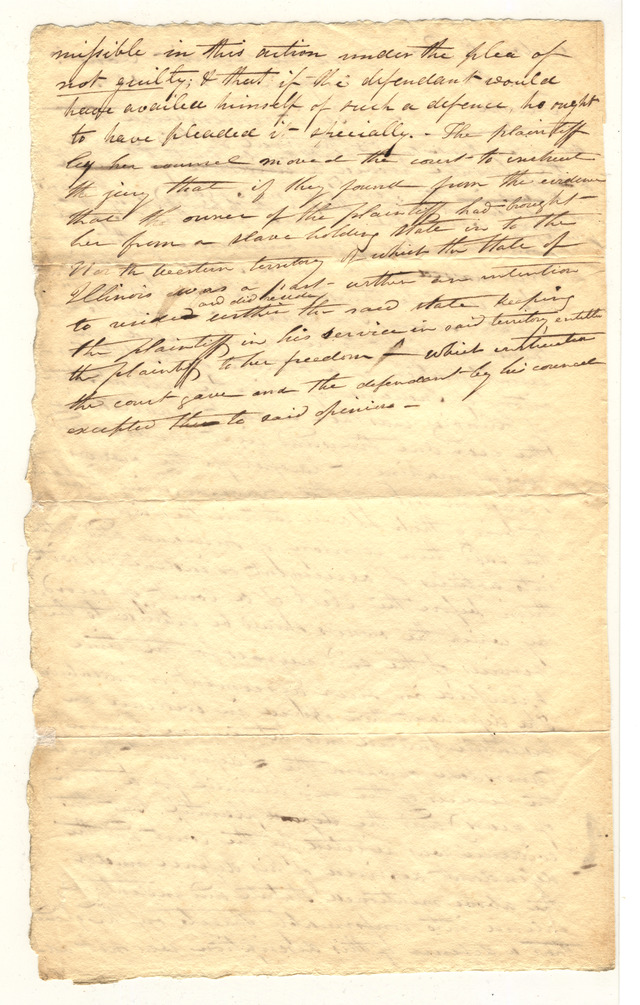 missible in this action under the plea of
not guilty; & that if the defendant would
have availed himself of such a defence, he ought
to have pleaded it specially. - The plaintiff
by her counsel moved the court to instruct
the jury that if they found from the evidence
that the owner of the plaintiff had brought
her from a slave holding state in to the
North western territory of which the State of
Illinois was a part - with an intention
and did reside
to reside within the said state keeping
the plaintiff in his service in said territory entitle
the plaintiff to her freedom - which instruction
the court gave and the defendant by his counsel
excepted to said opinion -